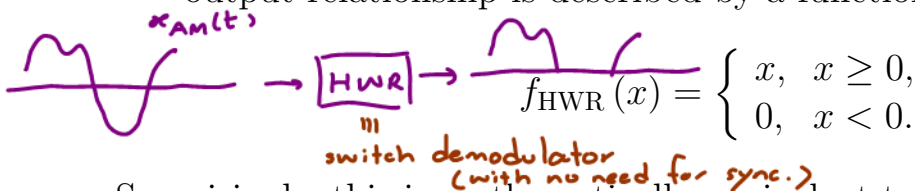 output relationship is described by a function
x_AM(t)
HWR
f_HWR (x) = { x, x ≥ 0,
0, x < 0.
≡
switch demodulator
(with no need for sync.)